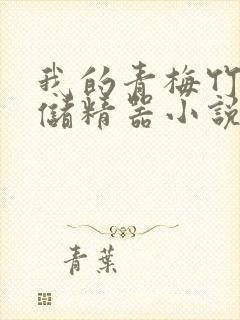 我的青梅竹
儲精器小說
青葉